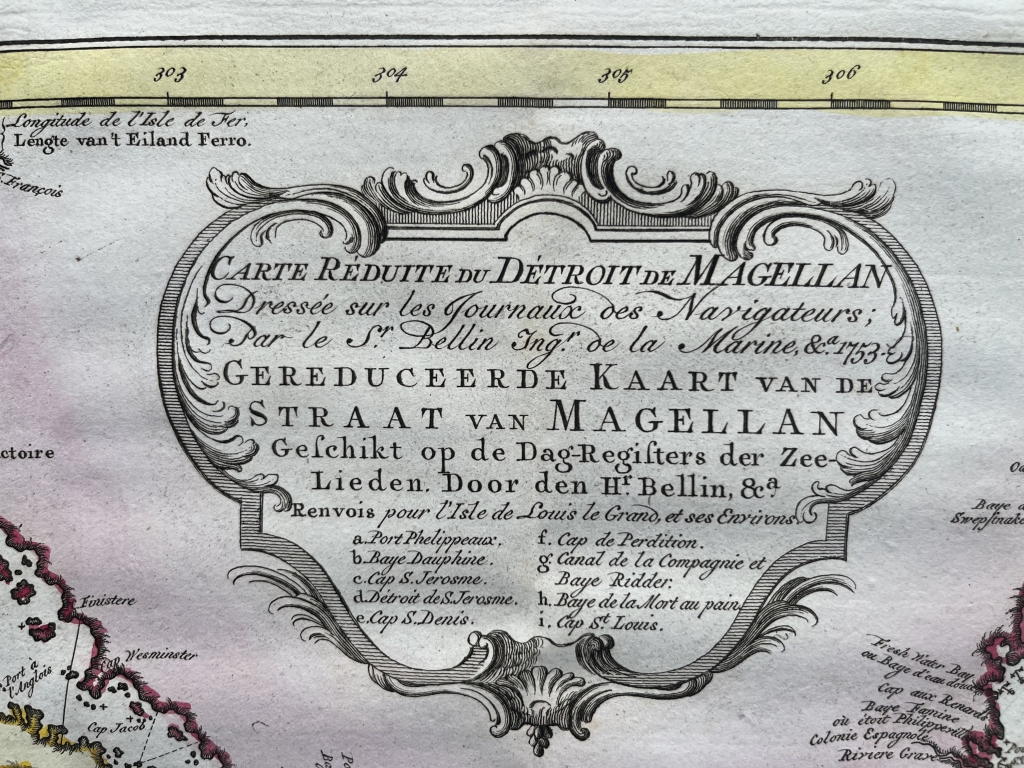 303 304 305 306
Longitude de l'Isle de Fer.
Lengte van't Eiland Ferro.
François
CARTE RÉDUITE DU DÉTROIT DE MAGELLAN
Dressée sur les Journaux des Navigateurs;
Par le Sr. Bellin Ingr. de la Marine, &ca. 1753.
GEREDUCEERDE KAART VAN DE
STRAAT VAN MAGELLAN
Geſchikt op de Dag-Regiſters der Zee-
Lieden. Door den Hr. Bellin, &ca.
Renvois pour l'Isle de Louis le Grand, et ses Environs.
a. Port Phelippeaux.
b. Baye Dauphine.
c. Cap S. Jerosme.
d. Détroit de S. Jerosme.
e. Cap S. Denis.
f. Cap de Perdition.
g. Canal de la Compagnie et
Baye Ridder.
h. Baye de la Mort au pain.
i. Cap St. Louis.
ctoire
Finistere
Cap Wesminster
Port à
l'Anglois
Cap Jacob
Baye d
Fresh Water Bay
ou Baye d'eau douce
Cap aux Renards
Baye Famine
où étoit Philippeville
Colonie Espagnole
Riviere Grave